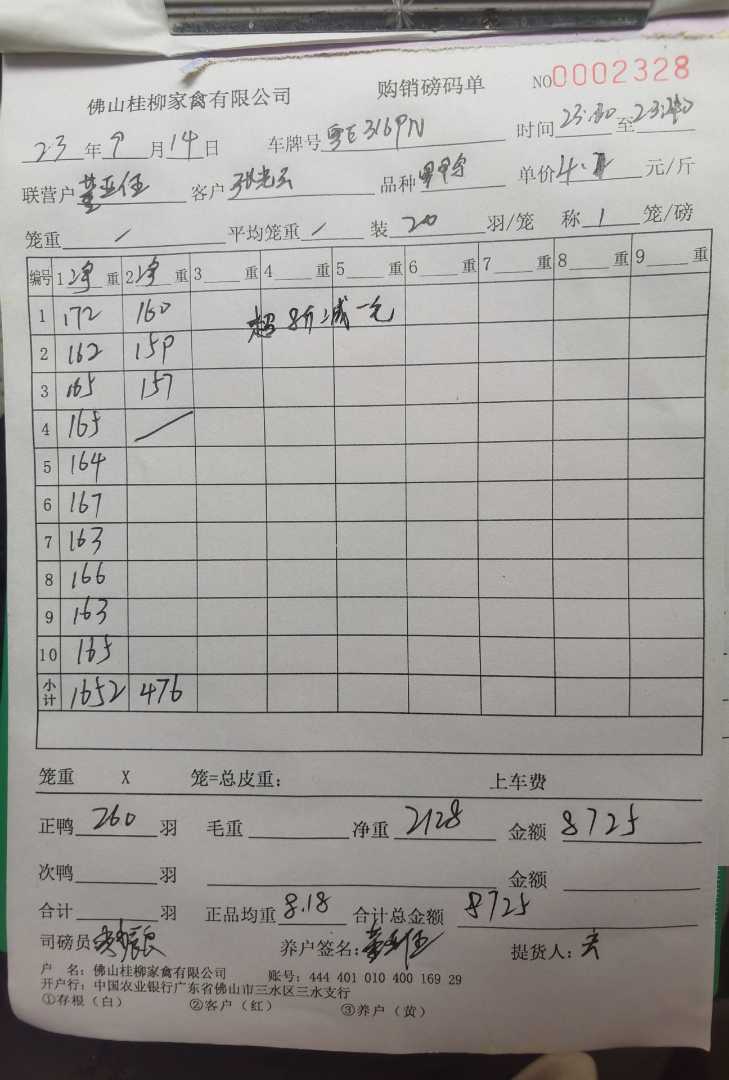 佛山桂柳家禽有限公司 购销磅码单 NO0002328
23年9月14日 车牌号粤E316PN 时间23:30至23:40
联营户董亚任 客户张光云 品种 单价4.1元/斤
笼重/ 平均笼重/ 装20羽/笼 称1笼/磅
编号 1净重 2净重 3重 4重 5重 6重 7重 8重 9重
1 172 160 超8斤减一元
2 162 159
3 165 157
4 165 /
5 164
6 167
7 163
8 166
9 163
10 165
小计 1652 476
笼重 X 笼=总皮重: 上车费
正鸭260羽 毛重 净重2128 金额8725
次鸭 羽 金额
合计 羽 正品均重8.18 合计总金额8725
司磅员 养户签名:董亚任 提货人:
户 名:佛山桂柳家禽有限公司 账号:444 401 010 400 169 29
开户行:中国农业银行广东省佛山市三水区三水支行
①存根(白) ②客户(红) ③养户(黄)